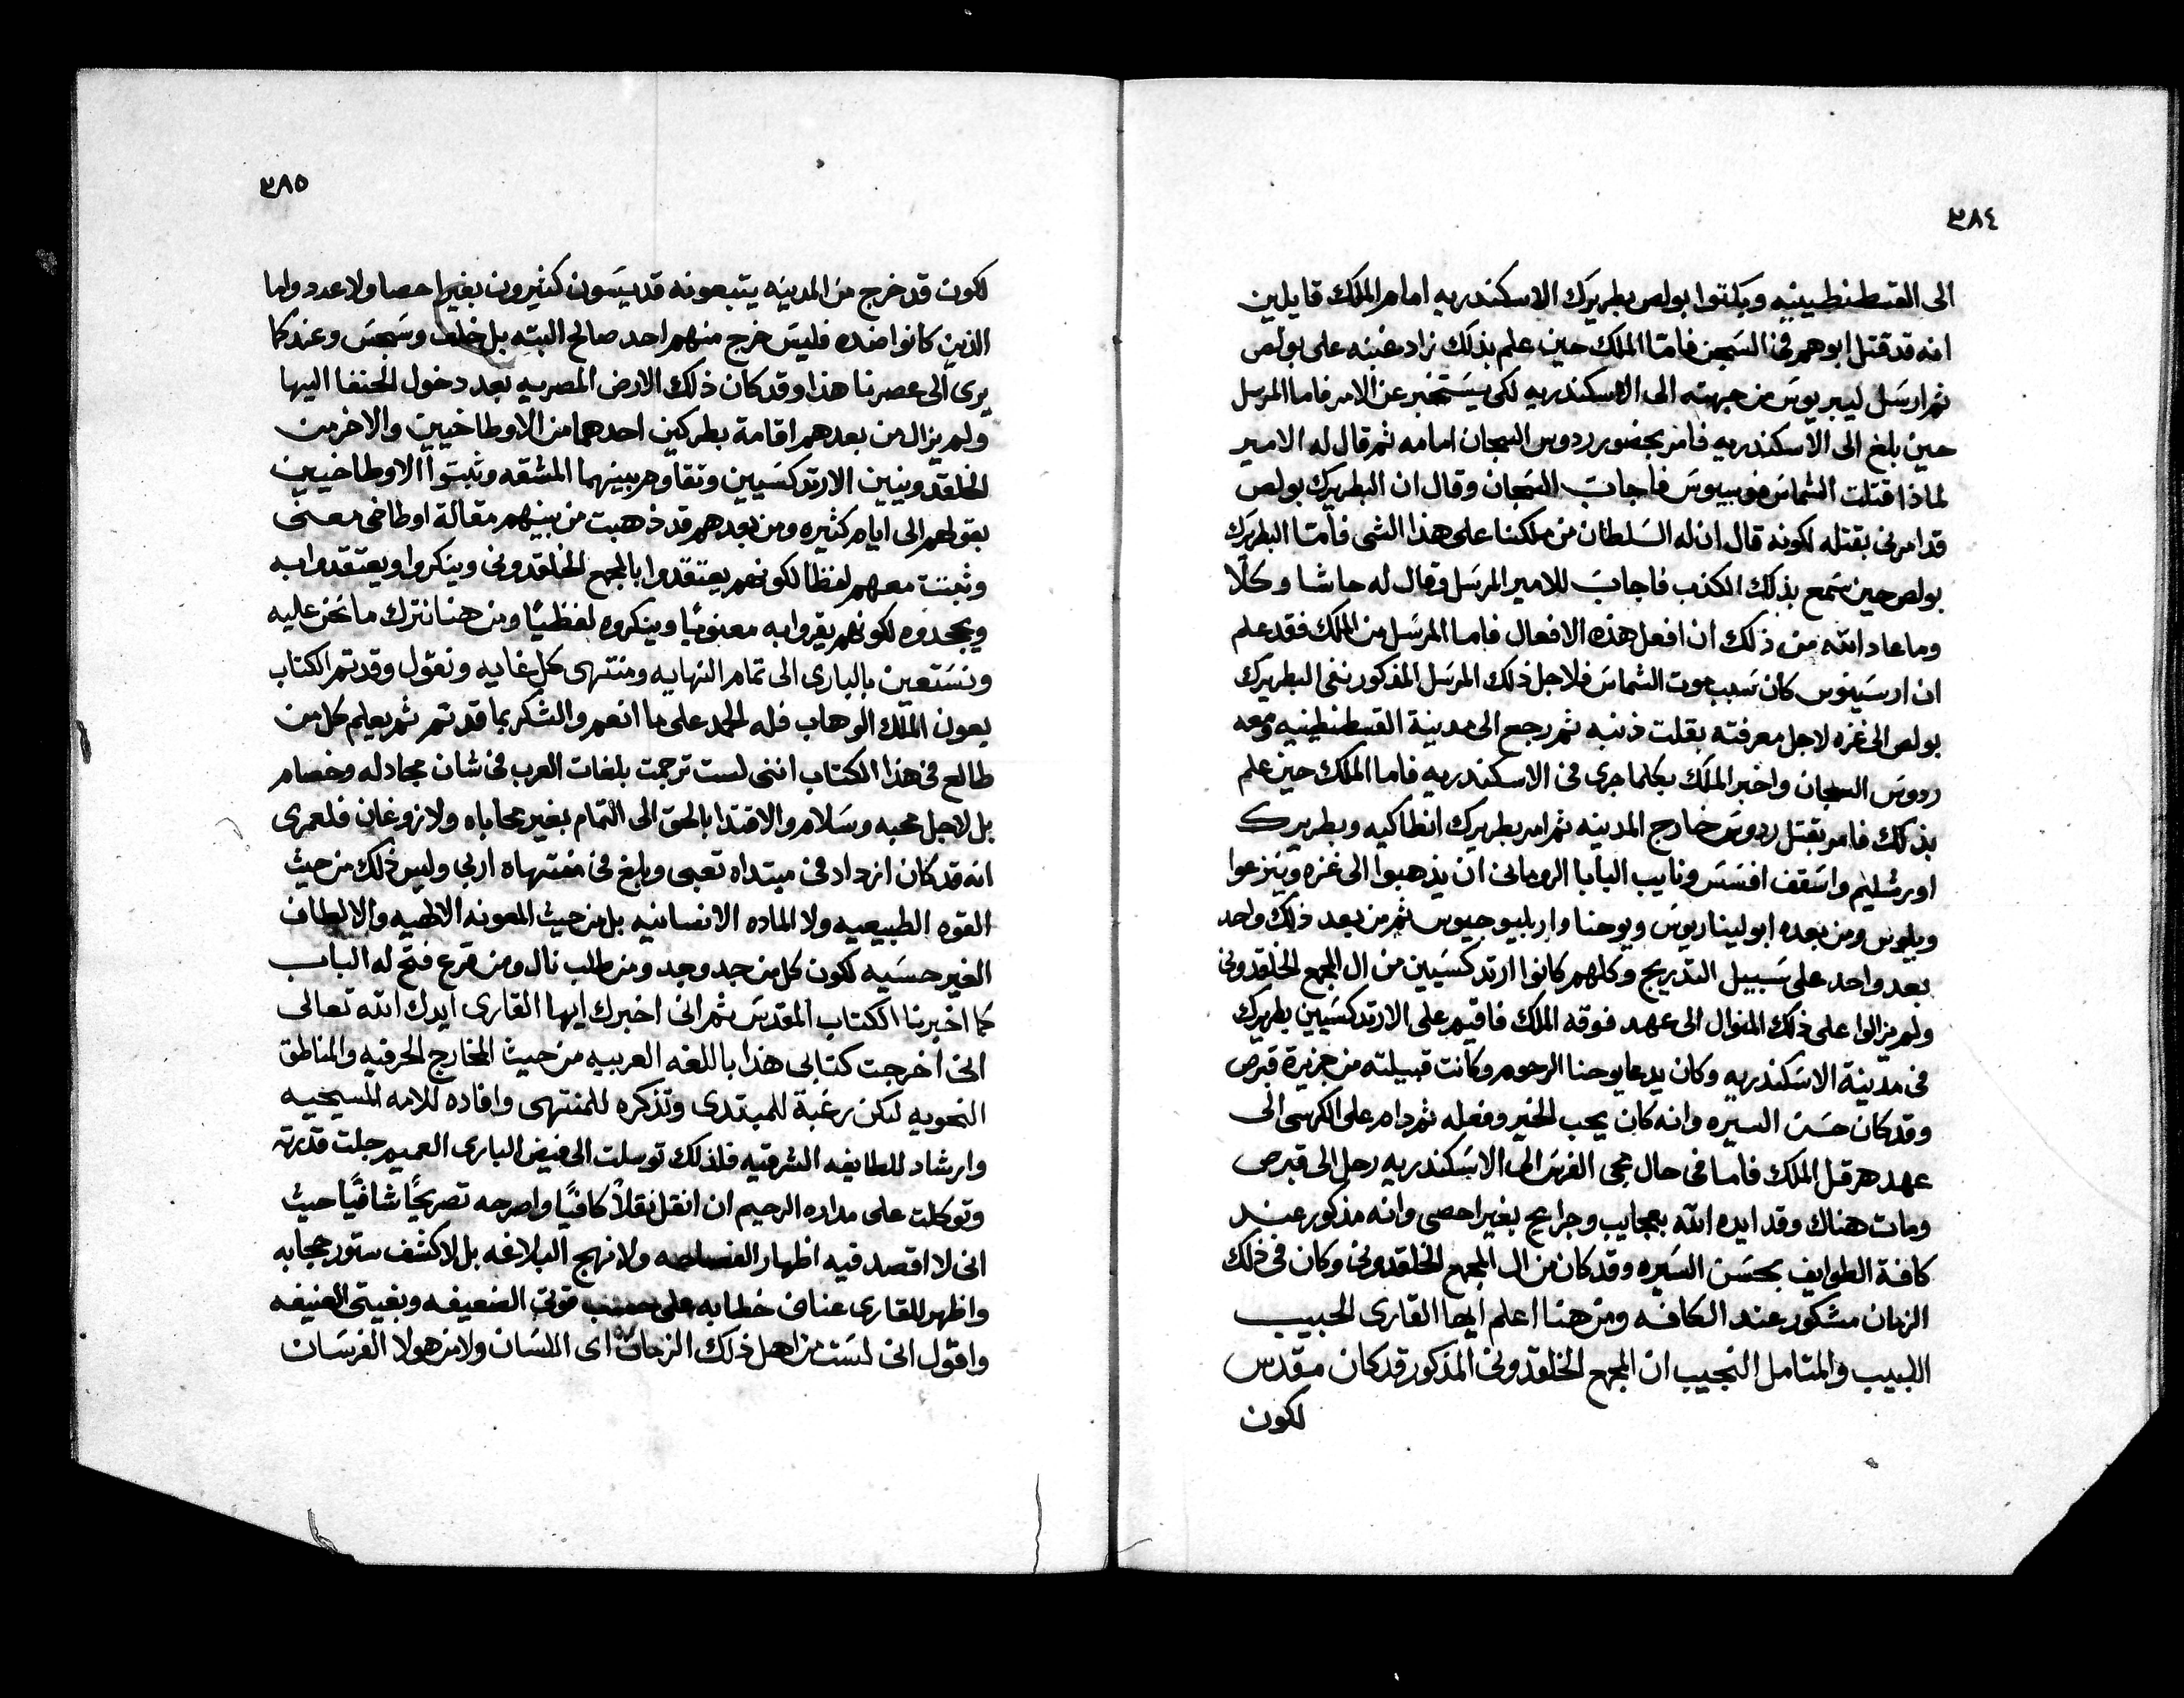 ٣٨٤
الى القسطنطينيه ويبكتوا بولص بطريرك الاسكندريه امام الملك قايلين
انه قد قتل ابوهم في السجن فامّا الملك حين علم بذلك زاد غبنه على بولص
ثم ارسل ليبريوس من جهته الى الاسكندريه لكى يستخبر عن الامر فاما المرسل
حين بلغ الى الاسكندريه فامر بحضور ردوس السجان امامه ثم قال له الامير
لماذا قتلت الشماس فاجاب السجان وقال ان البطريرك بولص
قد امرنى بقتله لكونه قال ان له السلطان من ملكنا على هذا الشى فامّا البطريرك
بولص حين سمع بذلك الكذب فاجاب للامير المرسل وقال له حاشا وكلّا
وما عاد الله من ذلك ان افعل هذه الافعال فاما المرسل من الملك فقد علم
ان ارسينوس كان سبب موت الشماس فلاجل ذلك المرسل المذكور نفى البطريرك
بولص الى غزه لاجل معرفته بقلت ذنبه ثم رجع الى مدينة القسطنطينيه ومعه
ردوس السجان واخبر الملك بكلما جرى في الاسكندريه فاما الملك حين علم
بذلك فامر بقتل ردوس خارج المدينه ثم امر بطريرك انطاكيه وبطريرك
اورشليم واسقف افسس ونايب البابا الرومانى ان يذهبوا الى غزه وينزعوا
ومن بعده ابوليناريوس ويوحنا واربليوجيوس ثم من بعد ذلك واحد
بعد واحد على سبيل التدريج وكلهم كانوا ارتدكسيين من ال المجمع الخلقدونى
ولم يزالوا على ذلك المنوال الى عهد فوقه الملك فاقيم على الارتدكسيين بطريرك
فى مدينة الاسكندريه وكان يدعا يوحنا الرحوم وكانت قبيلته من جزيرة قبرص
وقد كان حسن السيره وانه كان يحب الخير وفعله ثم دام على الكرسى الى
عهد هرقل الملك فاما فى حال مجى الفرس الى الاسكندريه رحل الى قبرص
ومات هناك وقد ايده الله بعجايب وجرايح بغير احصى وانه مذكور عند
كافة الطوايف بحسن السيره وقد كان من ال المجمع الخلقدونى وكان فى ذلك
الزمان مشكور عند الكافه ومن هنا اعلم ايها القارى الحبيب
اللبيب والمتامل النجيب ان المجمع الخلقدونى المذكور قد كان مقدس
لكون
٣٨٥
لكون قد خرج من المدينه يتبعونه قديسون كثيرون بغير احصا ولا عدد واما
الذين كانوا ضده فليس خرج منهم احد صالح البته بل خلف وسجس وعند كما
يرى الى عصرنا هذا وقد كان ذلك الارض المصريه بعد دخول الحنفا اليها
ولم يزال من بعدهم اقامة بطركين احدهما من الاوطاخيين والاخر من
الخلقدونيين الارتدكسيين وتقاوم بينهما المشقه وثبتوا الاوطاخيين
بقولهم الى ايام كثيره ومن بعدهم قد ذهبت من بينهم مقالة اوطاخى معنى
وثبتت معهم لفظا لكونهم يعتقدوا بالمجمع الخلقدونى وينكروا ويعتقدوا به
ويجحدوه لكونهم يقروا به معنويًا وينكروه لفظيًا ومن هنا نترك ما نحن عليه
ونستعين بالبارى الى تمام النهايه ومنتهى كل غايه ونقول وقد تم الكتاب
بعون الملك الوهاب فله الحمد على ما انعم والشكر بما قد تم ثم يعلم كل من
طالع فى هذا الكتاب اننى لست ترجمت بلغات العرب فى شان مجادله وخصام
بل لاجل محبه وسلام والاقتدا بالحق الى التمام بغير محاباه ولا زوغان فلعمرى
انه قد كان ازداد فى مبتداه تعبى وبلغ فى منتهاه اربى وليس ذلك من حيث
القوه الطبيعيه ولا الماده الانسانيه بل من حيث المعونه الالهيه والالطاف
الغير حسيه لكون كل من جد وجد ومن طلب نال ومن قرع فتح له الباب
كما اخبرنا الكتاب المقدس ثم انى اخبرك ايها القارى ايدك الله تعالى
انى اخرجت كتابى هذا باللغه العربيه من حيث المخارج الحرفيه والمناطق
النحويه لكن رغبة للمبتدى وتذكره للمنتهى وافاده للامه المسيحيه
وارشاد للطايفه الشرقيه فلذلك توسلت الى فيض البارى العميم جلت قدرته
وتوكلت على مداده الرحيم ان انقل نقلاً كافيًا واصرحه تصريحًا شافيًا حيث
انى لا اقصد فيه اظهار الفصاحه ولا نهج البلاغه بل لاكشف ستور حجابه
واظهر للقارى عنان خطابه على حسب قوتى الضعيفه وبغيتى العنيفه
واقول انى لست من اهل ذلك الزمان اى اللسان ولا من هولا الفرسان